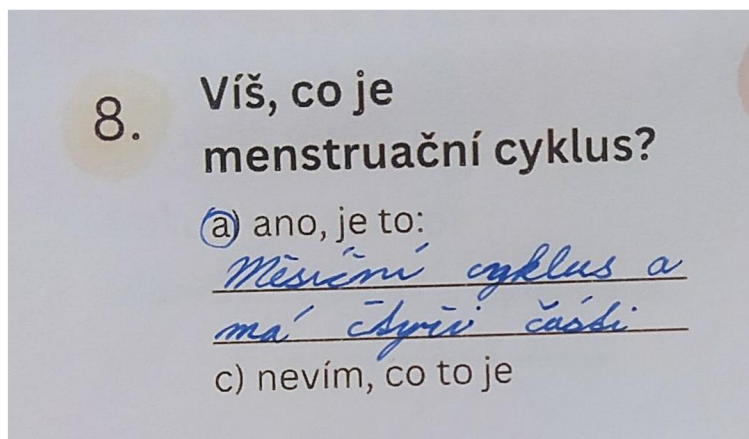 8.
Víš, co je
menstruační cyklus?
a) ano, je to:
Měsíční cyklus a
má čtyři části
c) nevím, co to je